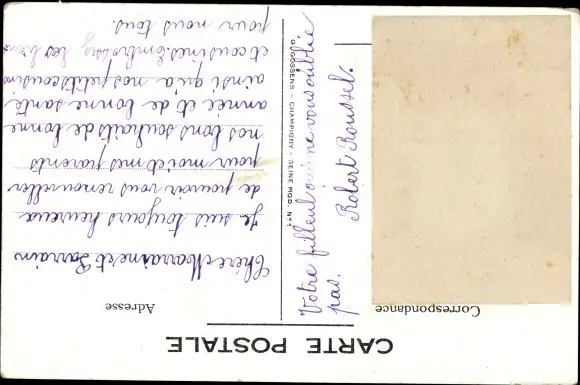 CARTE POSTALE
Correspondance
Adresse
Chère Marraine et Parrain
Je suis toujours heureux
de pouvoir vous renouveller
pour moi et mes parents
nos bons souhaits de bonne
année et de bonne santé
ainsi qu'a nos petits cousins
et cousines. Embrassez les biens
pour nous tous.
Votre filleul qui ne vous oublie
pas.
Robert Roussel.
G. GOSSENS - CHAMPIGNY - SEINE MOD. N°